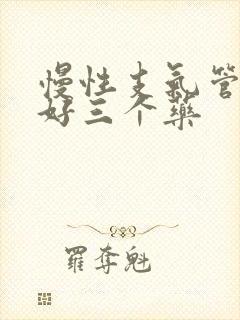 慢性支氣管
好三个藥
羅奪魁